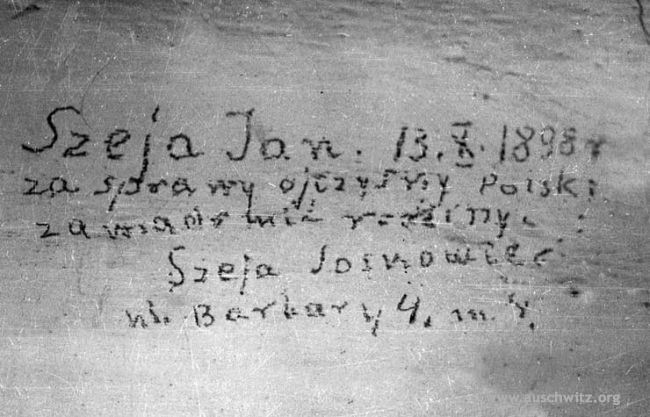 Szeja Jan. 13. X. 1898 r
za sprawy ojczysny Polski
zawiadomic rodziny.
Szeja Sosnowiec
ul. Barbary 4. m. 4.
www.auschwitz.org